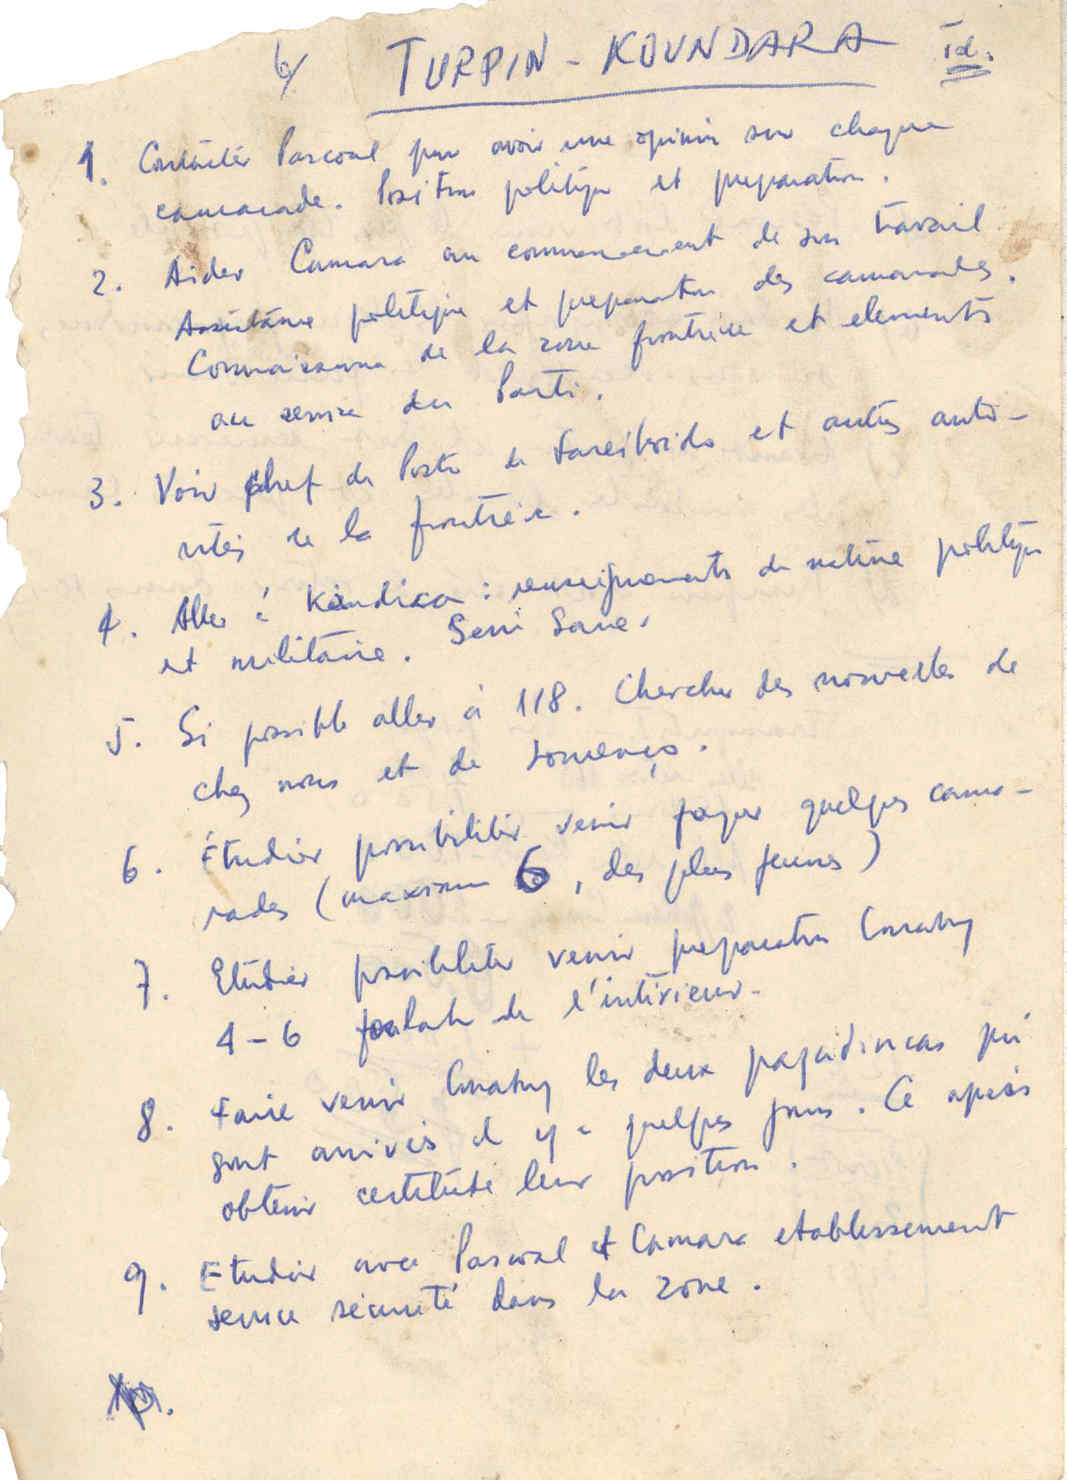 6/ TURPIN - KOUNDARA Id.
1. Contacter Pascoal pour avoir une opinion sur chaque
camarade. Position politique et preparation.
2. Aider Camara au commencement de son travail
Assistance politique et preparation des camarades.
Connaissance de la zone frontière et elements
au service du Parti.
3. Voir chef de Poste de et autres auto-
rités de la frontière.
4. Aller à Kandika : renseignements de nature politique
et militaire. Seni Sane.
5. Si possible aller à 118. Chercher des nouvelles de
chez nous et de Lourenço.
6. Étudier possibilité venir foyer quelques cama-
rades (maximum 6, des plus jeunes)
7. Etudier possibilité venir preparation Conakry
4-6 de l'intérieur.
8. Faire venir Conakry les deux pajadincas qui
sont arrivés il y a quelques jours. Ce après
obtenir certitude leur position.
9. Etudier avec Pascoal et Camara etablissement
service sécurité dans la zone.